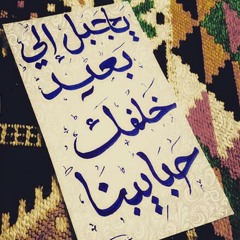 ياجبل الي
بعيد
خلفك
حبايبنا